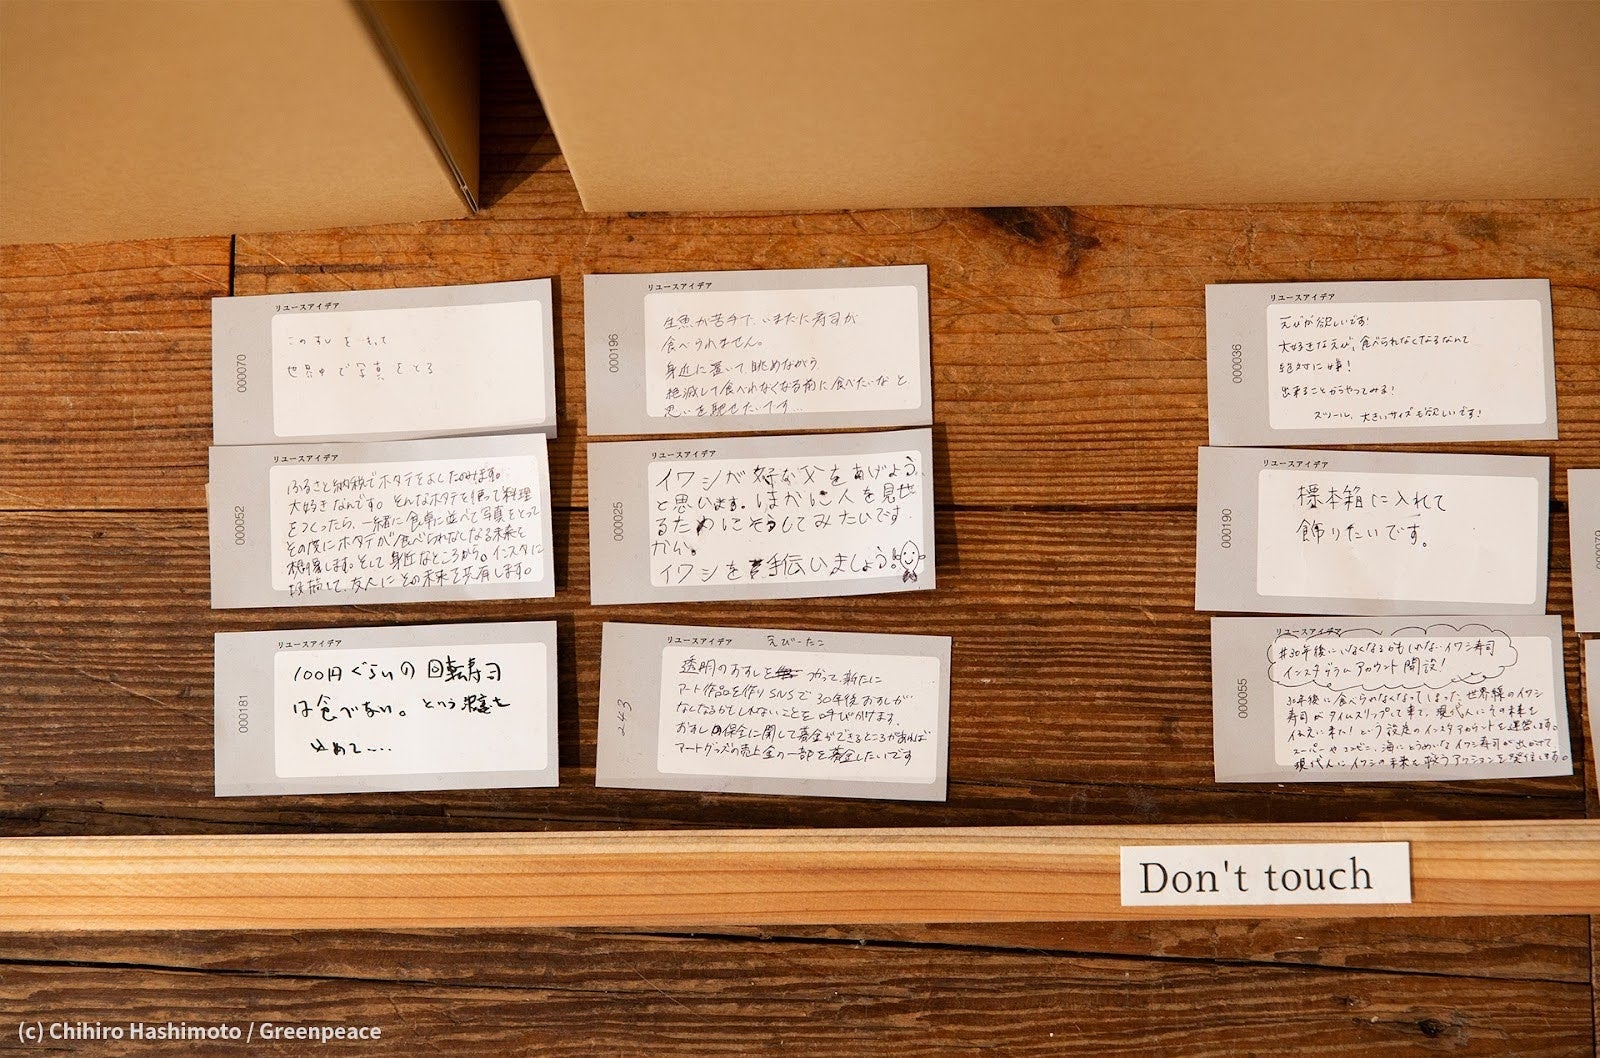 リユースアイデア
000070
このすしをもって
世界中で写真をとる
リユースアイデア
000196
生魚が苦手で、いまだに寿司が
食べられません。
身近に置いて、眺めながら
絶滅して食べれなくなる前に食べたいな と
思いを馳せたいです…
リユースアイデア
000036
えびが欲しいです
大好きなえび、食べられなくなるなんて
絶対に嫌!
出来ることからやってみる!
スツール、大きいサイズも欲しいです!
リユースアイデア
000052
ふるさと納税でホタテをよしたのみます。
大好きなんです。そんなホタテを使って料理
をつくったら、一緒に食卓に並べて写真をとって
その度にホタテが食べられなくなる未来を
想像します。そして身近なところから。インスタに
投稿して、友人にその未来を共有します。
リユースアイデア
000025
イワシが好きな父をあげよう
と思います。ほかに人を見せ
るためにそうしてみたいです
から。
イワシを手伝いましょう!
リユースアイデア
000190
標本箱に入れて
飾りたいです。
リユースアイデア
000181
100円ぐらいの回転寿司
は食べない。という
込めて....
リユースアイデア
えび-たこ
243
透明のおすしを かって、新たに
アート作品を作りSNSで30年後おすしが
なくなるかもしれないことを呼びかけます。
おすしの保全に関して募金ができるところがあれば
アートグッズの売上金の一部を募金したいです
リユースアイデア
000055
#30年後にいなくなるかもしれないイワシ寿司
インスタグラムアカウント開設!
30年後に食べられなくなってしまった世界線のイワシ
寿司がタイムスリップして来て、現代人にその未来を
伝えに来た!という設定のインスタアカウントを運営します。
スーパーやコンビニ、海にとうめいなイワシ寿司が出かけて
現代人にイワシの未来を救うアクションを発信します。
Don't touch
(c) Chihiro Hashimoto / Greenpeace